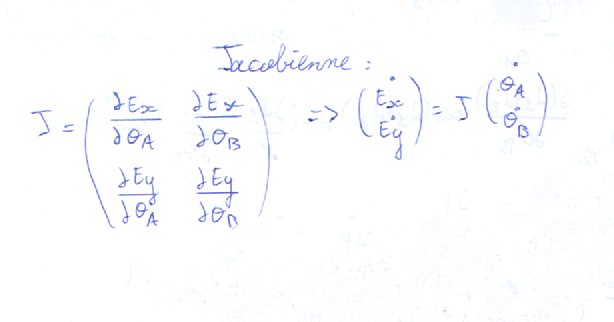 Jacobienne :
J = ( ∂Ex/∂θA ∂Ex/∂θB ; ∂Ey/∂θA ∂Ey/∂θB ) => ( Ėx ; Ėy ) = J ( θ̇A ; θ̇B )